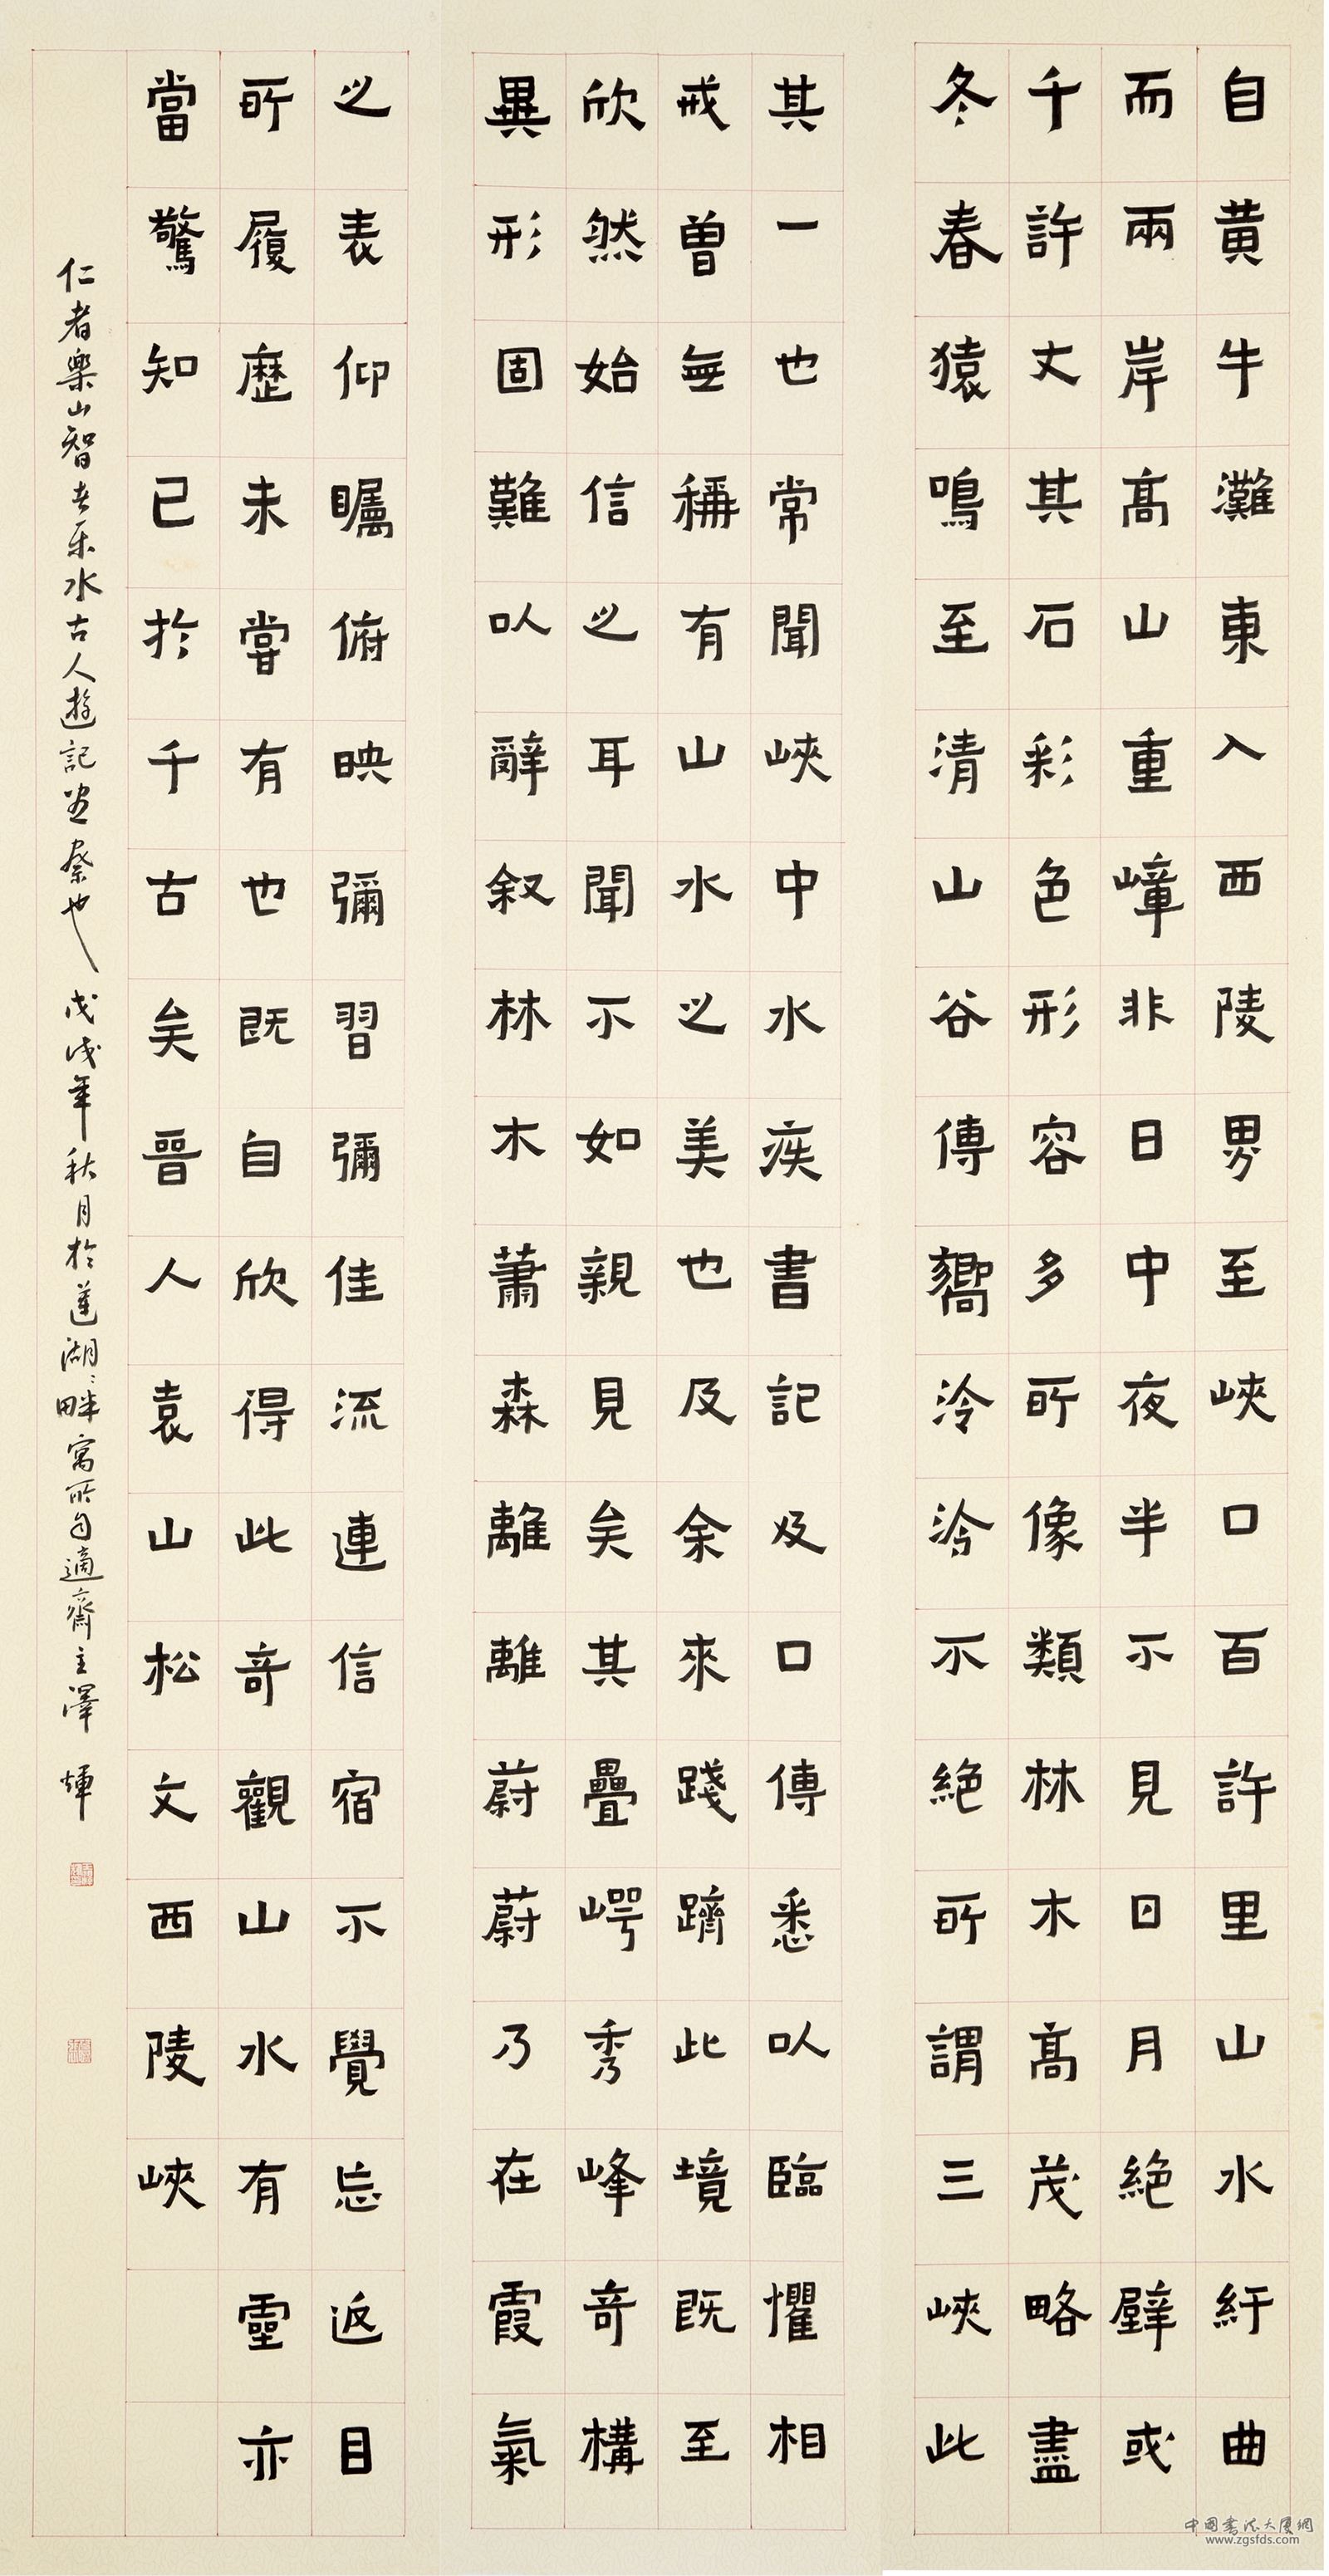 自黃牛灘東入西陵界至峽口百許里山水紆曲
而兩岸高山重嶂非日中夜半不見日月絕壁或
千許丈其石彩色形容多所像類林木高茂略盡
冬春猿鳴至清山谷傳響泠泠不絕所謂三峽此
其一也常聞峽中水疾書記及口傳悉以臨懼相
戒曾無稱有山水之美也及余來踐躋此境既至
欣然始信之耳聞不如親見矣其疊崿秀峰奇構
異形固難以辭叙林木蕭森離離蔚蔚乃在霞氣
之表仰矚俯映彌習彌佳流連信宿不覺忘返目
所履歷未嘗有也既自欣得此奇觀山水有靈亦
當驚知己於千古矣晉人袁山松文西陵峽
仁者樂山智者乐水古人遊記盡祭也戊戌年秋月於蓮湖湖畔寓所自適齋主澤輝
中国书法大厦網
www.zgsfds.com